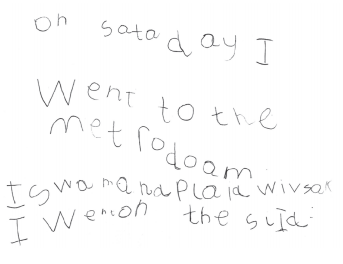 on sataday I
Went to the
metrodoam
I swamandplaid wivsak
I Wenon the slid.